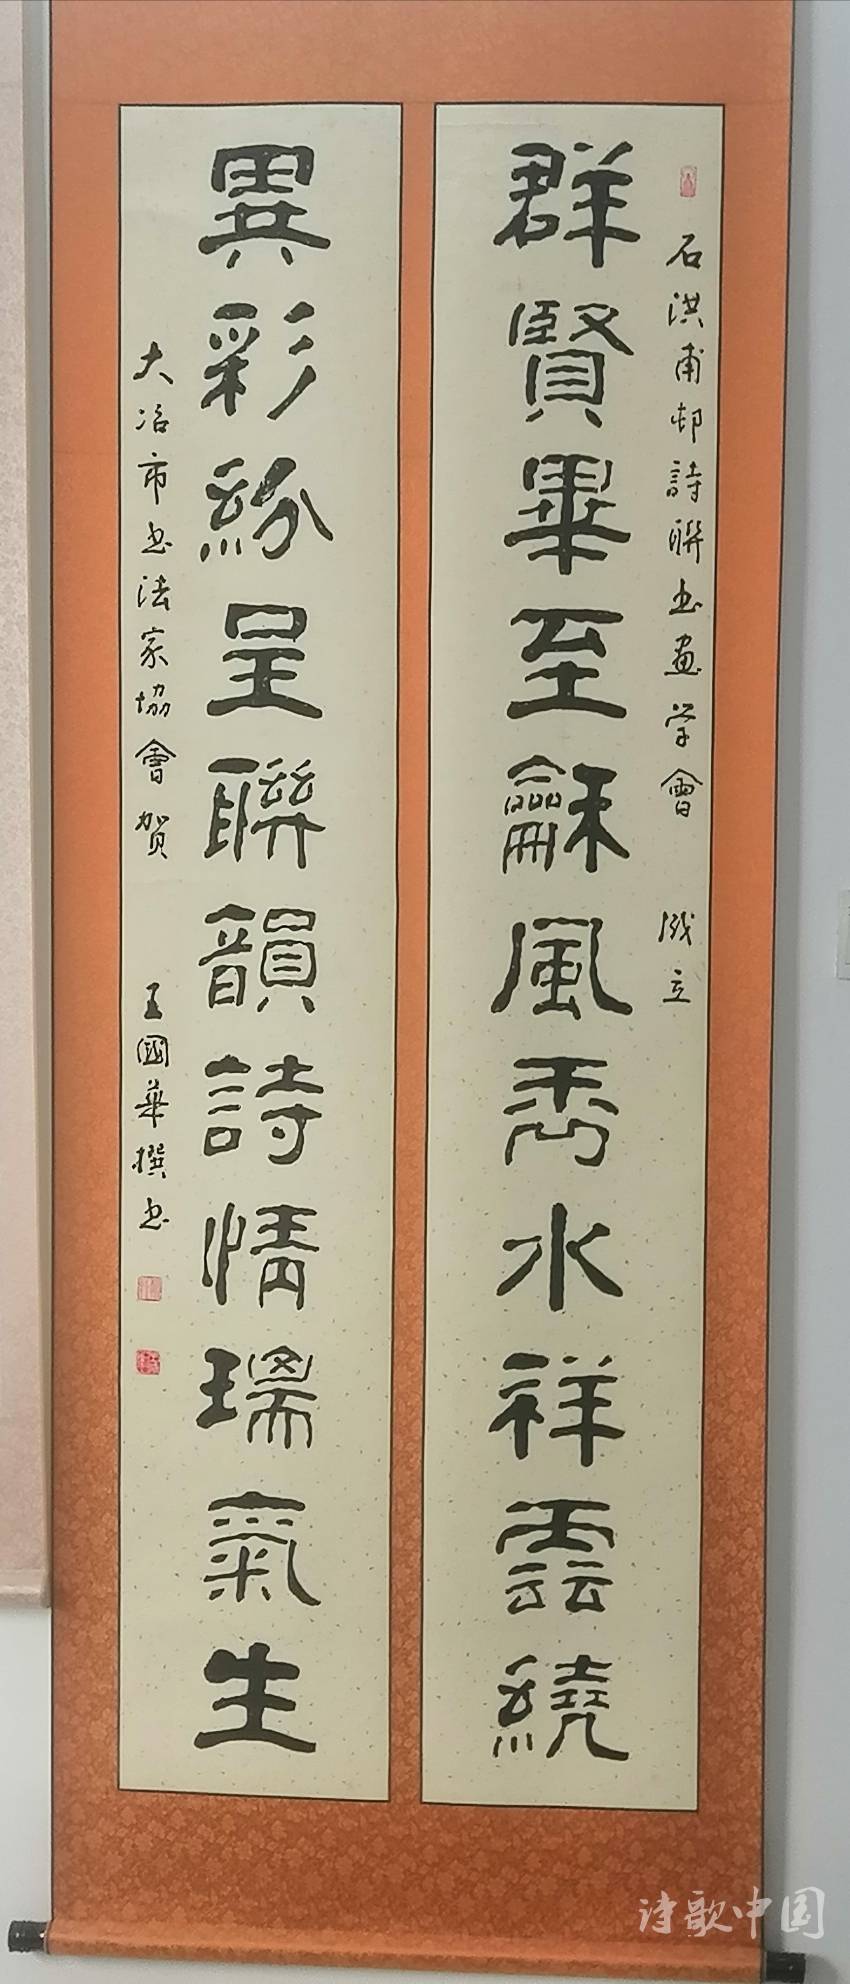 石洪甫邨詩聯书画学會 成立
群賢畢至龢風秀水祥雲繞
異彩紛呈聯韻詩情瑞氣生
大冶市书法家協會贺 王國華撰书
诗歌中国